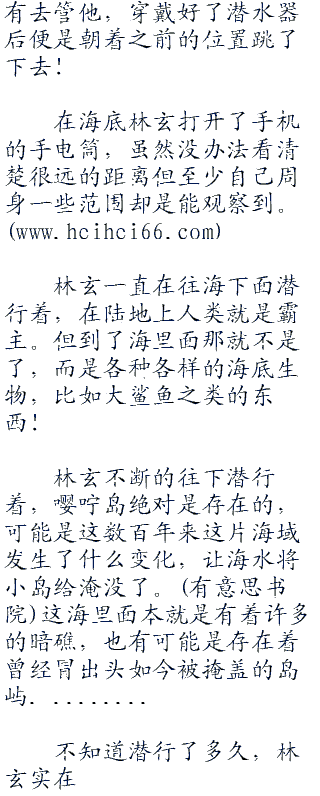 有去管他，穿戴好了潜水器
后便是朝着之前的位置跳了
下去！
在海底林玄打开了手机
的手电筒，虽然没办法看清
楚很远的距离但至少自己周
身一些范围却是能观察到。
(www.hcihci66.com)
林玄一直在往海下面潜
行着，在陆地上人类就是霸
主。但到了海里面那就不是
了，而是各种各样的海底生
物，比如大鲨鱼之类的东
西！
林玄不断的往下潜行
着，嘤咛岛绝对是存在的，
可能是这数百年来这片海域
发生了什么变化，让海水将
小岛给淹没了。(有意思书
院)这海里面本就是有着许多
的暗礁，也有可能是存在着
曾经冒出头如今被掩盖的岛
屿．........
不知道潜行了多久，林
玄实在